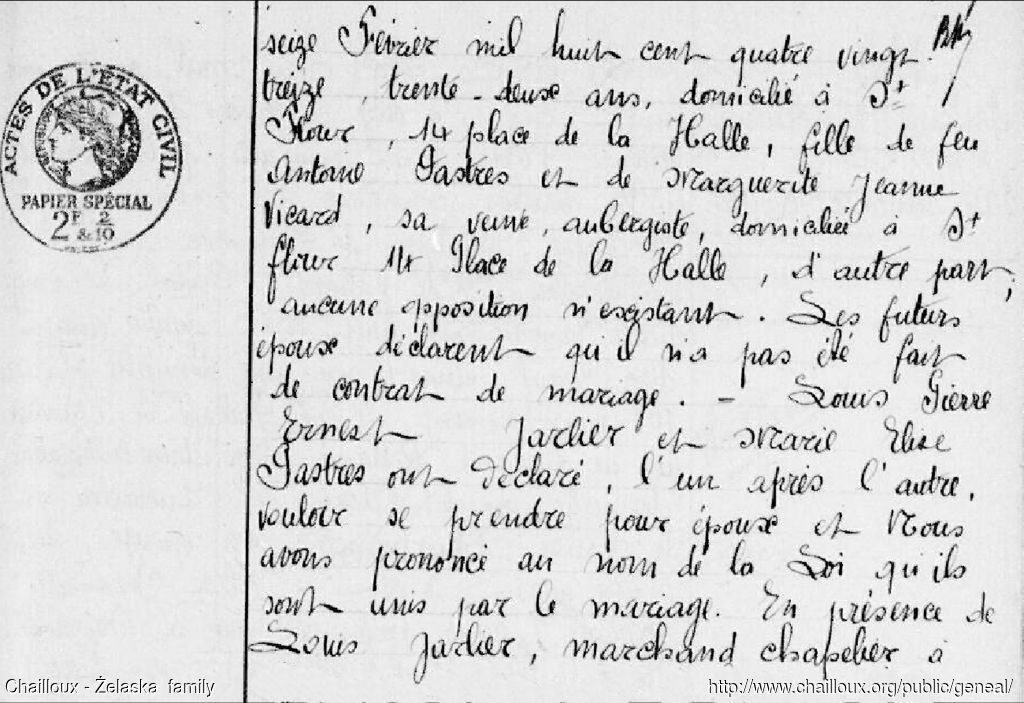 ACTES DE L'ÉTAT CIVIL
PAPIER SPÉCIAL
2F 2
&10
seize Février mil huit cent quatre vingt
treize, trente-deux ans, domicilié à St
Flour, 14 place de la Halle, fille de feu
Antoine Pastres et de Marguerite Jeanne
Vicard, sa veuve, aubergiste, domiciliée à St
flour 14 Place de la Halle, d'autre part;
aucune opposition n'existant. Les futurs
époux déclarent qu'il n'a pas été fait
de contrat de mariage. - Louis Pierre
Ernest Jarlier et Marie Elise
Pastres ont déclaré, l'un après l'autre,
vouloir se prendre pour époux et Nous
avons prononcé au nom de la Loi qu'ils
sont unis par le mariage. En présence de
Louis Jarlier, marchand chapelier à
Chailloux - Żelaska family
http://www.chailloux.org/public/geneal/